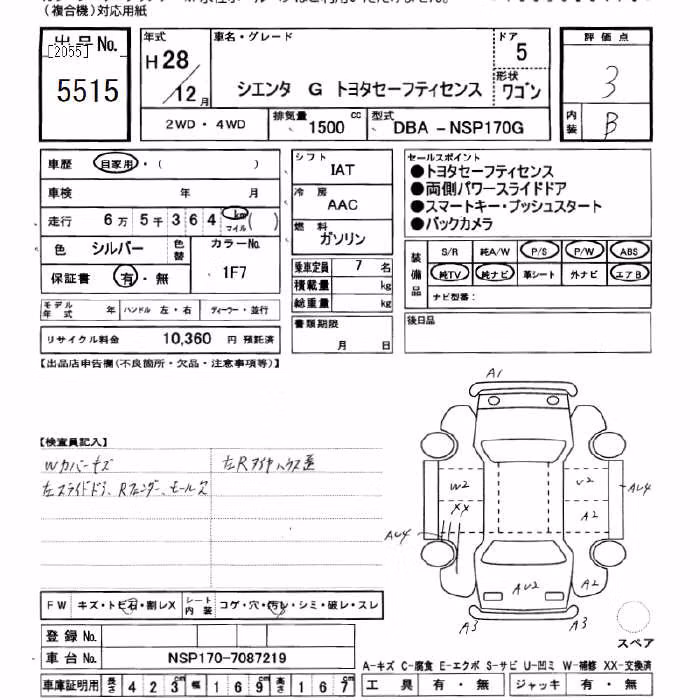 (複合機)対応用紙
出品No.
[2055]
5515
年式
H28/12月
車名・グレード
シエンタ G トヨタセーフティセンス
ドア
5
形状
ワゴン
評価点
3
内装
B
2WD・4WD
排気量
1500 cc
型式
DBA-NSP170G
車歴 自家用・( )
車検 年 月
走行 6万 5千 3 6 4 km マイル ( )
色 シルバー 色替 カラーNo. 1F7
保証書 有・無
シフト
IAT
冷房
AAC
燃料
ガソリン
乗車定員 7 名
積載量 kg
総重量 kg
書類期限
月 日
セールスポイント
●トヨタセーフティセンス
●両側パワースライドドア
●スマートキー・プッシュスタート
●バックカメラ
装備品
S/R 純A/W P/S P/W ABS
純TV 純ナビ 革シート 外ナビ エアB
ナビ型番:
後日品
モデル年式 年 ハンドル 左・右 ディーラー・並行
リサイクル料金 10,360 円 預託済
【出品店申告欄(不良箇所・欠品・注意事項等)】
【検査員記入】
Wカバーキズ
左スライドドア、Rフェンダー、モールス
A1
W2
U2
XX
A2
AU4
AU4
AU2
A2
A3
A3
スペア
FW キズ・トビ石・割レX シート内装 コゲ・穴・汚レ・シミ・破レ・スレ
登録No.
車台No. NSP170-7087219
A-キズ C-腐食 E-エクボ S-サビ U-凹ミ W-補修 XX-交換済
車庫証明用 長さ 4 2 3cm 幅 1 6 9cm 高さ 1 6 7cm
工具 有・無 ジャッキ 有・無